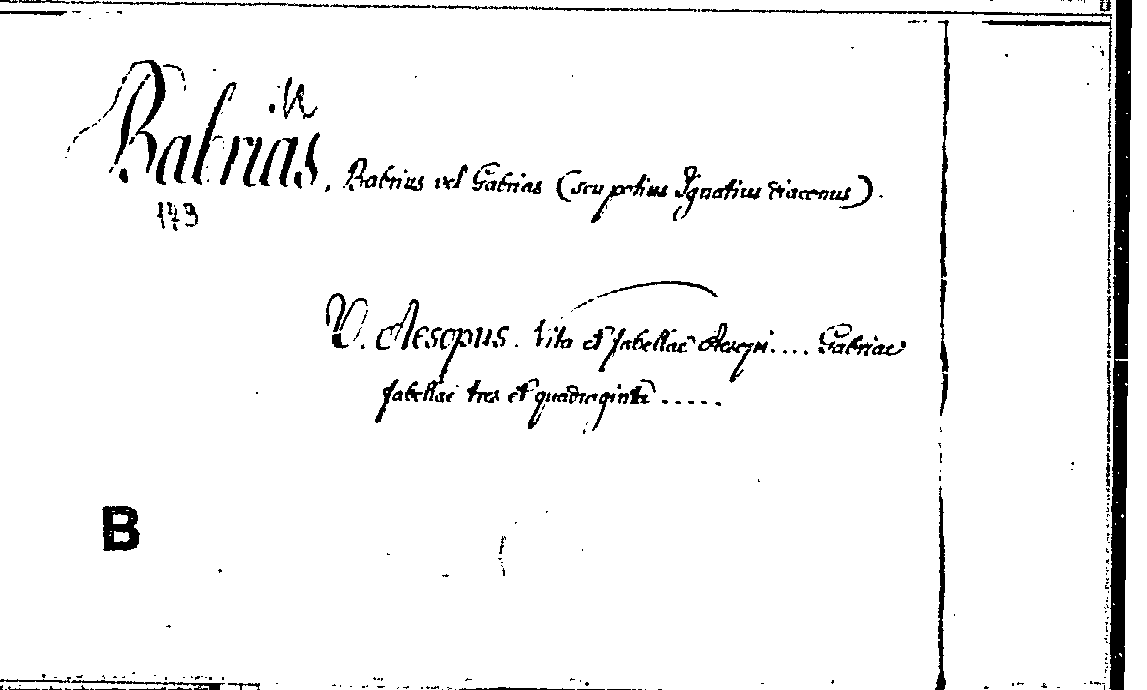 Babrias, Babrius vel Gabrias (seu potius Ignatius diaconus).
149
V. Aesopus. Vita et fabellae Aesopi.... Gabriae
fabellae tres et quadraginta.....
B